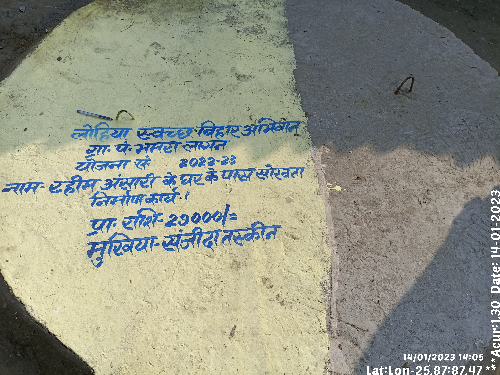 लोहिया स्वच्छ बिहार अभियान
ग्रा. पं.
योजना सं 2022-23
नाम- रहीम अंसारी के घर के पास सोख्ता
निर्माण कार्य।
प्रा. राशि- 29000/=
मुखिया- संजीदा तस्कीन
14/01/2023 14:05
Lat:Lon-25.87:87.47
***Acur:1.30 Date: 14-01-2023